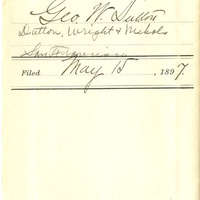 Geo. W. Dutton
Dutton, Wright & Nichols
San Francisco
Filed May 15, 1897.